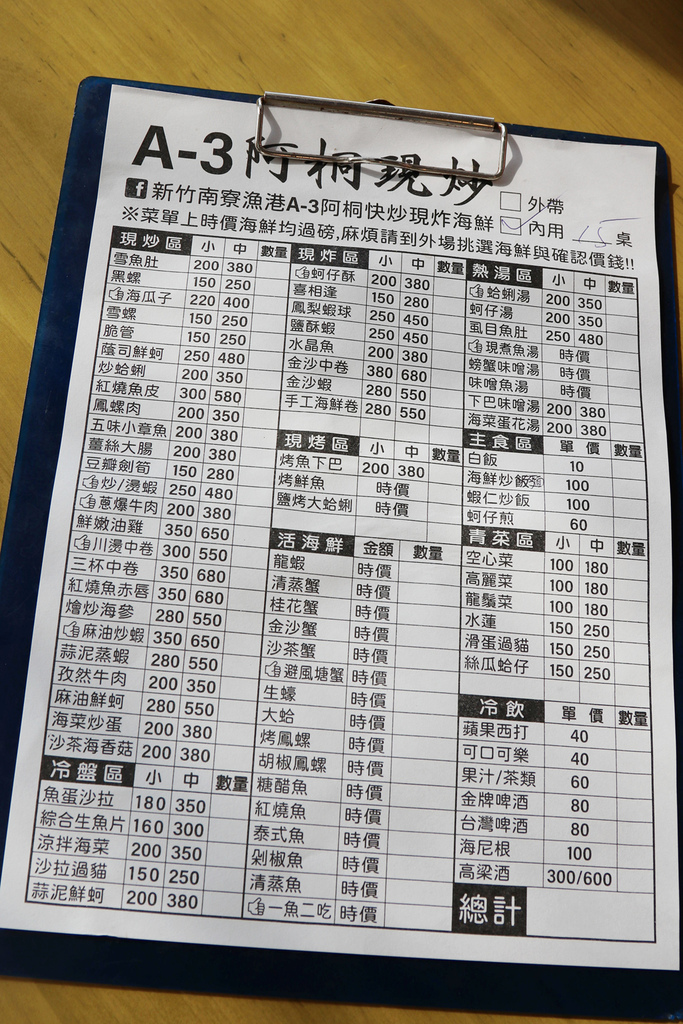 A-3阿桐現炒
新竹南寮漁港A-3阿桐快炒現炸海鮮
□外帶
□內用 15 桌
※菜單上時價海鮮均過磅,麻煩請到外場挑選海鮮與確認價錢!!
現炒區 小 中 數量
雪魚肚 200 380
黑螺 150 250
海瓜子 220 400
雪螺 150 250
脆管 150 250
蔭司鮮蚵 250 480
炒蛤蜊 200 350
紅燒魚皮 300 580
鳳螺肉 200 350
五味小章魚 200 380
薑絲大腸 200 380
豆瓣劍筍 150 280
炒/燙蝦 250 480
蔥爆牛肉 200 380
鮮嫩油雞 350 650
川燙中卷 300 550
三杯中卷 350 680
紅燒魚赤唇 350 680
燴炒海參 280 550
麻油炒蝦 350 650
蒜泥蒸蝦 280 550
孜然牛肉 200 350
麻油鮮蚵 280 550
海菜炒蛋 200 380
沙茶海香菇 200 380
冷盤區 小 中 數量
魚蛋沙拉 180 350
綜合生魚片 160 300
涼拌海菜 200 350
沙拉過貓 150 250
蒜泥鮮蚵 200 380
現炸區 小 中 數量
蚵仔酥 200 380
喜相逢 150 280
鳳梨蝦球 250 450
鹽酥蝦 250 450
水晶魚 200 380
金沙中卷 380 680
金沙蝦 280 550
手工海鮮卷 280 550
現烤區 小 中 數量
烤魚下巴 200 380
烤鮮魚 時價
鹽烤大蛤蜊 時價
活海鮮 金額 數量
龍蝦 時價
清蒸蟹 時價
桂花蟹 時價
金沙蟹 時價
沙茶蟹 時價
避風塘蟹 時價
生蠔 時價
大蛤 時價
烤鳳螺 時價
胡椒鳳螺 時價
糖醋魚 時價
紅燒魚 時價
泰式魚 時價
剁椒魚 時價
清蒸魚 時價
一魚二吃 時價
熱湯區 小 中 數量
蛤蜊湯 200 350
蚵仔湯 200 350
虱目魚肚 250 480
現煮魚湯 時價
螃蟹味噌湯 時價
味噌魚湯 時價
下巴味噌湯 200 380
海菜蛋花湯 200 380
主食區 單價 數量
白飯 10
海鮮炒飯 100
蝦仁炒飯 100
蚵仔煎 60
青菜區 小 中 數量
空心菜 100 180
高麗菜 100 180
龍鬚菜 100 180
水蓮 150 250
滑蛋過貓 150 250
絲瓜蛤仔 150 250
冷飲 單價 數量
蘋果西打 40
可口可樂 40
果汁/茶類 60
金牌啤酒 80
台灣啤酒 80
海尼根 100
高梁酒 300/600
總計